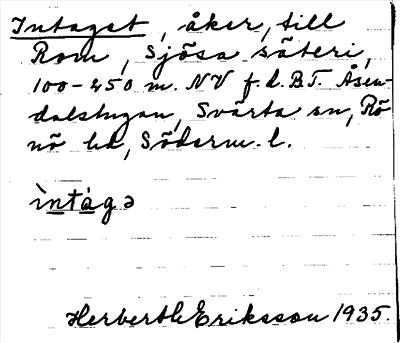 Intaget, åker, till
Rom, Sjösa säteri,
100-450 m. NV f.d. BT. Åsen-
dalstugan, Svärta sn, Rö-
nö hd, Söderm. l.
ìntàgə
Herbert Eriksson 1935.